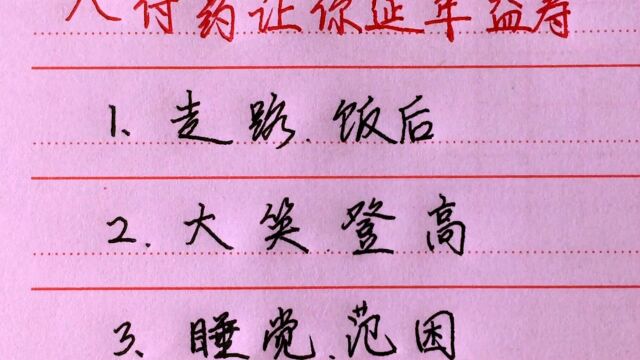 八付药让你延年益寿
1、走路、饭后
2、大笑、登高
3、睡觉、范困